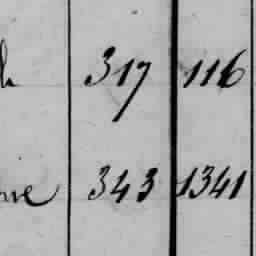 317 116
343 1341